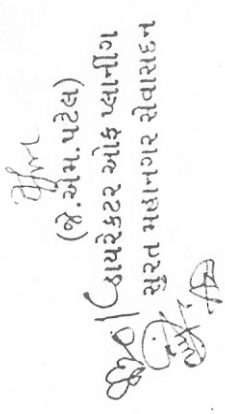 (જે.એમ.પટેલ)
ડાયરેકટર ઓફ પ્લાનીંગ
સુરત મહાનગર સેવાસદન